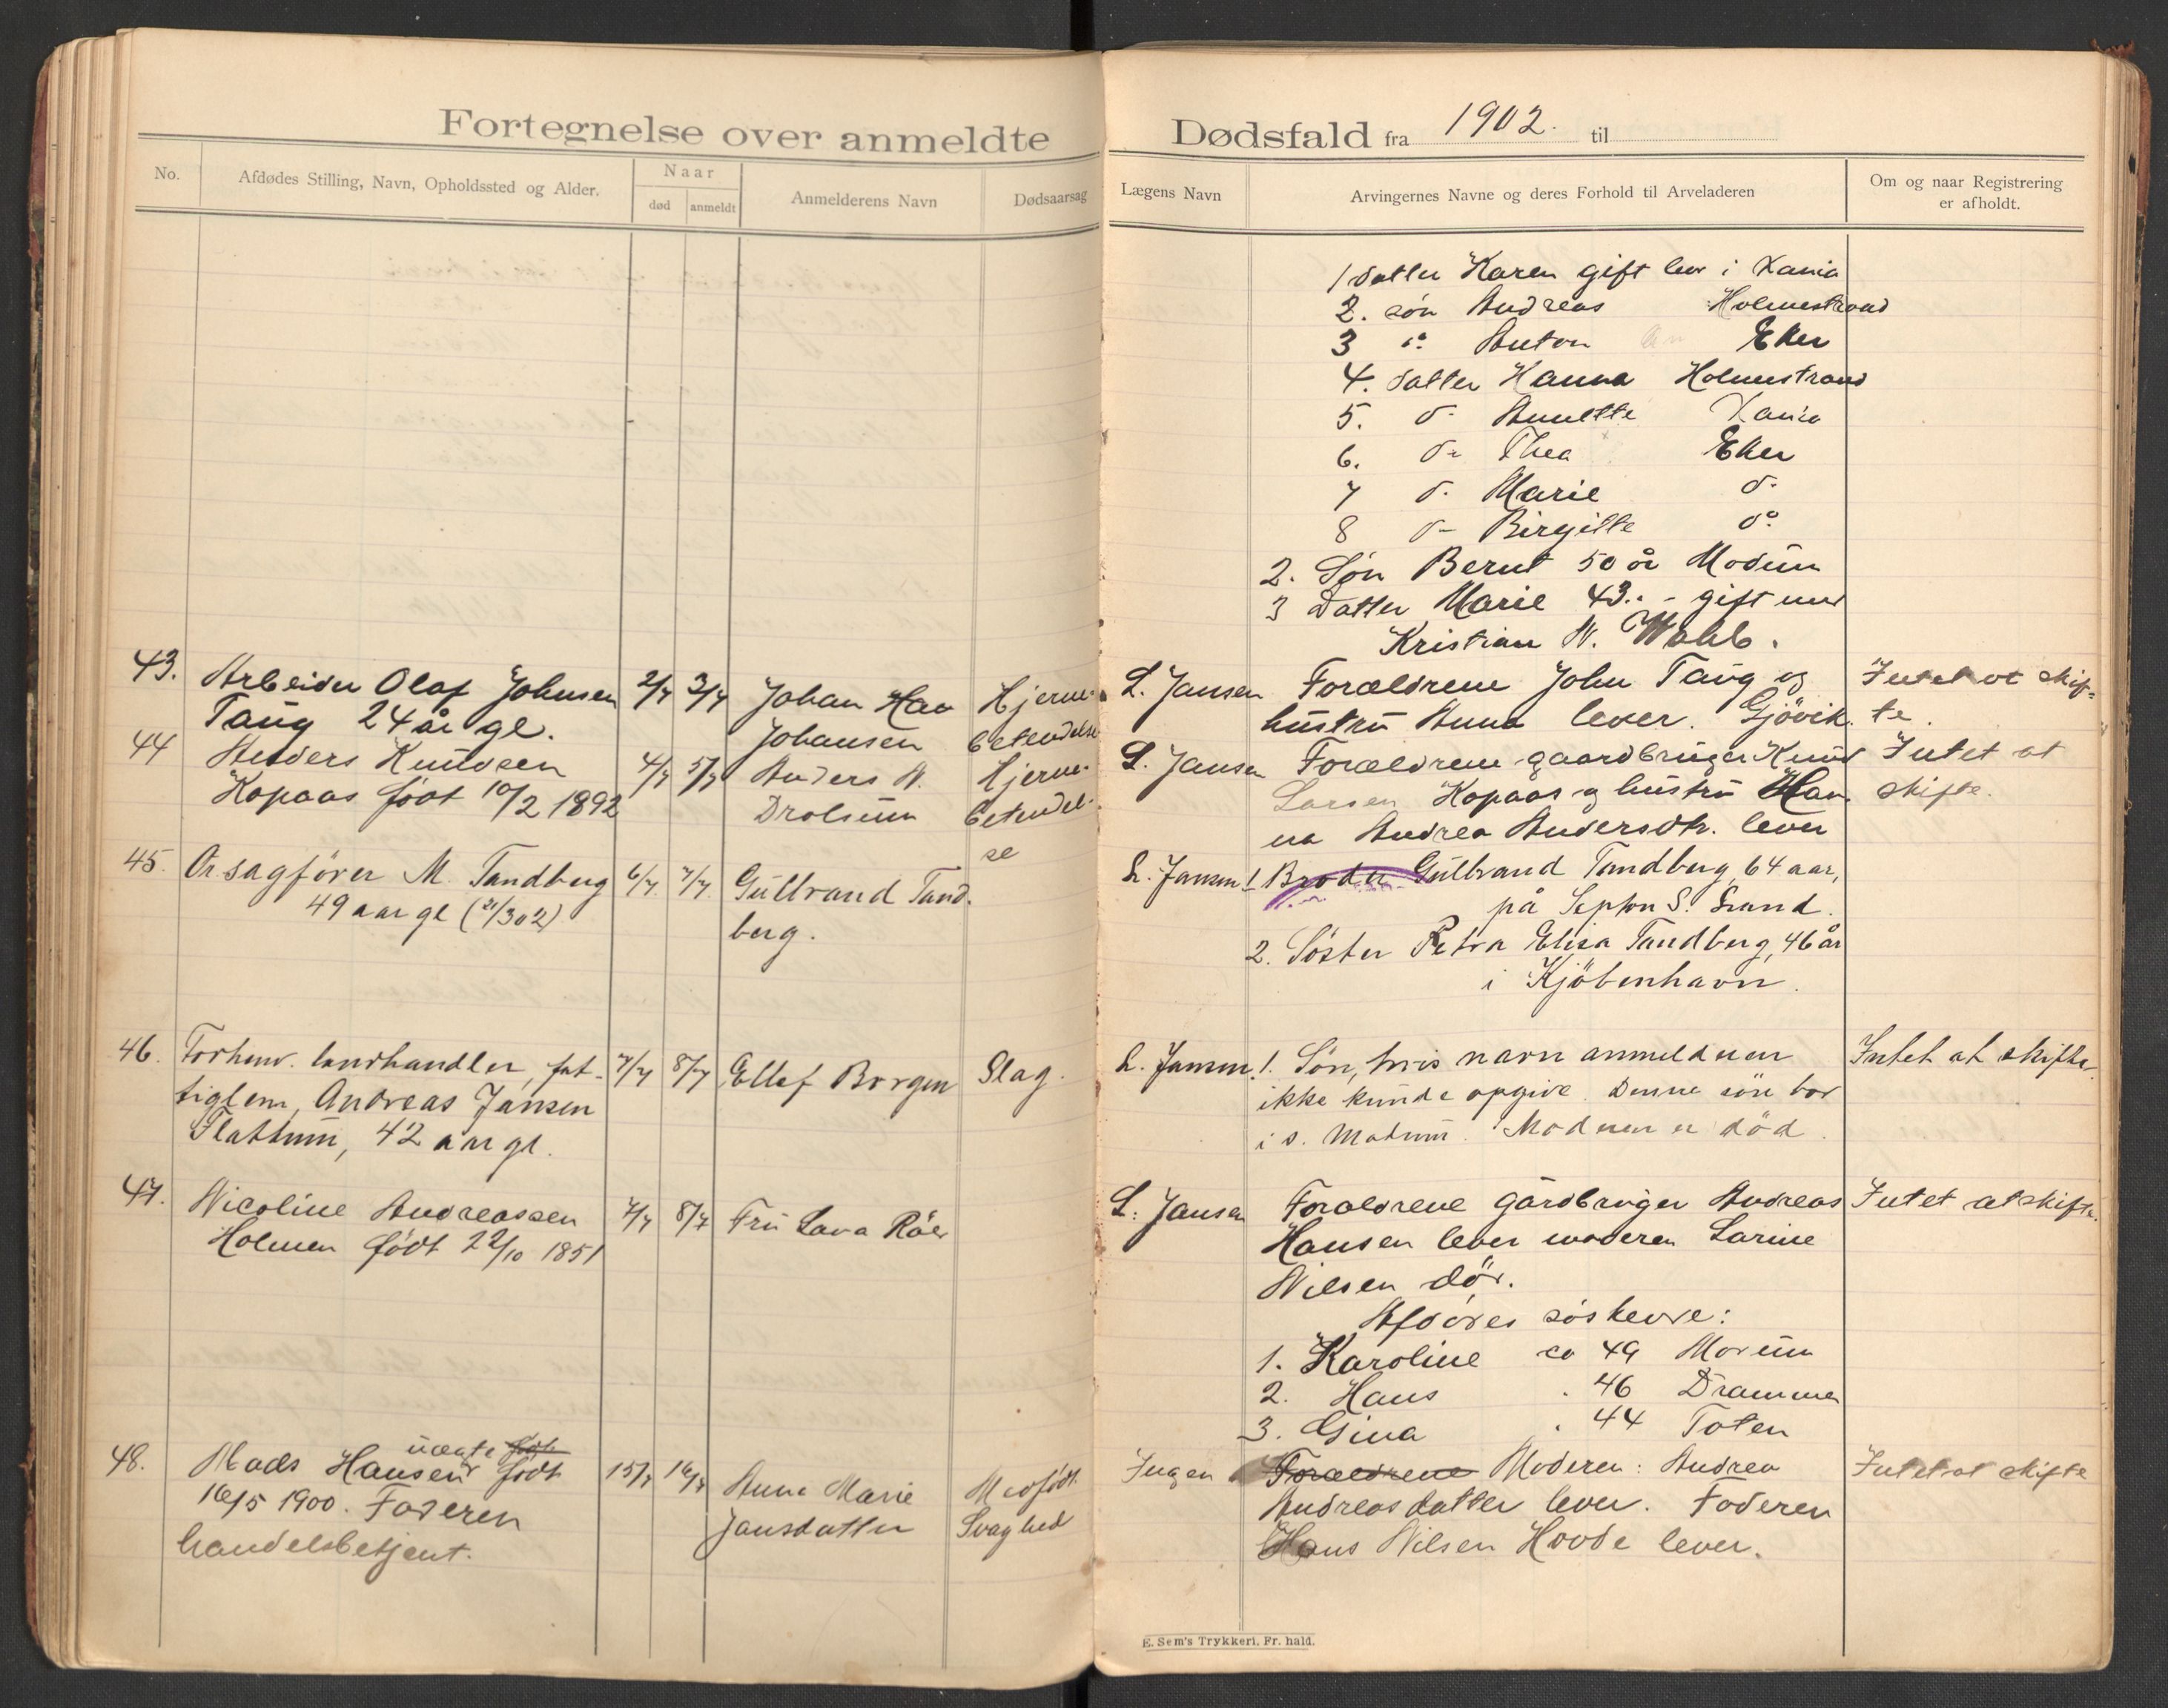 Fortegnelse over anmeldte
No.
Afdødes Stilling, Navn, Opholdssted og Alder.
Naar
død
anmeldt
Anmelderens Navn
Dødsaarsag
43. Arbeider Olaf Johnsen 2/7 3/7 Johan Hav Hjerne-
Taug 24 år gl. Johansen betendelse
44 Anders Knudsen 4/7 5/7 Anders N. Hjerne-
Kopaas født 10/2 1892 Drolsum betendel-
se
45. Or.sagfører M. Tandberg 6/7. 7/7. Gulbrand Tand-
49 aar gl (21/3 02) berg.
46. Forhenv. landhandler, fat- 7/7 8/7 Ellef Borgen Slag.
tiglem, Andreas Jansen
Flattum, 42 aar gl.
47. Nicoline Andreassen 7/7 8/7 Fru Lava Råer
Holmen født 22/10 1851
uægte født
48. Mads Hansen født 15/7 16/7 Anne Marie Medfødt
16/5 1900. Faderen Jansdatter Svaghed
handelsbetjent.
Dødsfald fra 1902. til
Lægens Navn
Arvingernes Navne og deres Forhold til Arveladeren
Om og naar Registrering
er afholdt.
1 datter Karen gift bor i Xania
2. søn Andreas Holmestrand
3 do Anton Eker
4. datter Hanna Holmestrand
5. d. Anette Xania
6. d. Thea Eker
7 d. Marie d.
8 d. Birgitte do
2. Søn Bernt 50 år Modum
3 Datter Marie 43.. - gift med
Kristian N. Wahlb.
L. Jansen Forældrene John Taug og Intet at skif-
hustru Anna lever. Gjövik. te.
L. Jansen Forældrene gaardbruger Knud Intet at
Larsen Kopaas og hustru Han- skifte.
na Andrea Andersdtr. lever
L. Jansen 1 Broder Gulbrand Tandberg, 64 aar,
på Sephon S. Lund.
2. Söster Petra Elisa Tandberg, 46 år
i Kjöbenhavn.
L. Jansen. 1. Søn, hvis navn anmelderen Intet at skifte.
ikke kunde opgive. Denne sön bor
i s. Modum. Moderen er död.
L. Jansen Forældrene gårdbruger Andreas Intet at skifte.
Hansen lever moderen Larine
Nilsen död.
Afdödes söskende:
1. Karoline ca 49 Modum
2. Hans . 46 Drammen
3. Gina . 44 Toten
Ingen Forældrene Moderen: Andrea Intet at skifte
Andreasdatter lever. Faderen
Hans Nilsen Hovde lever.
E. Sem's Trykkeri, Fr. hald.